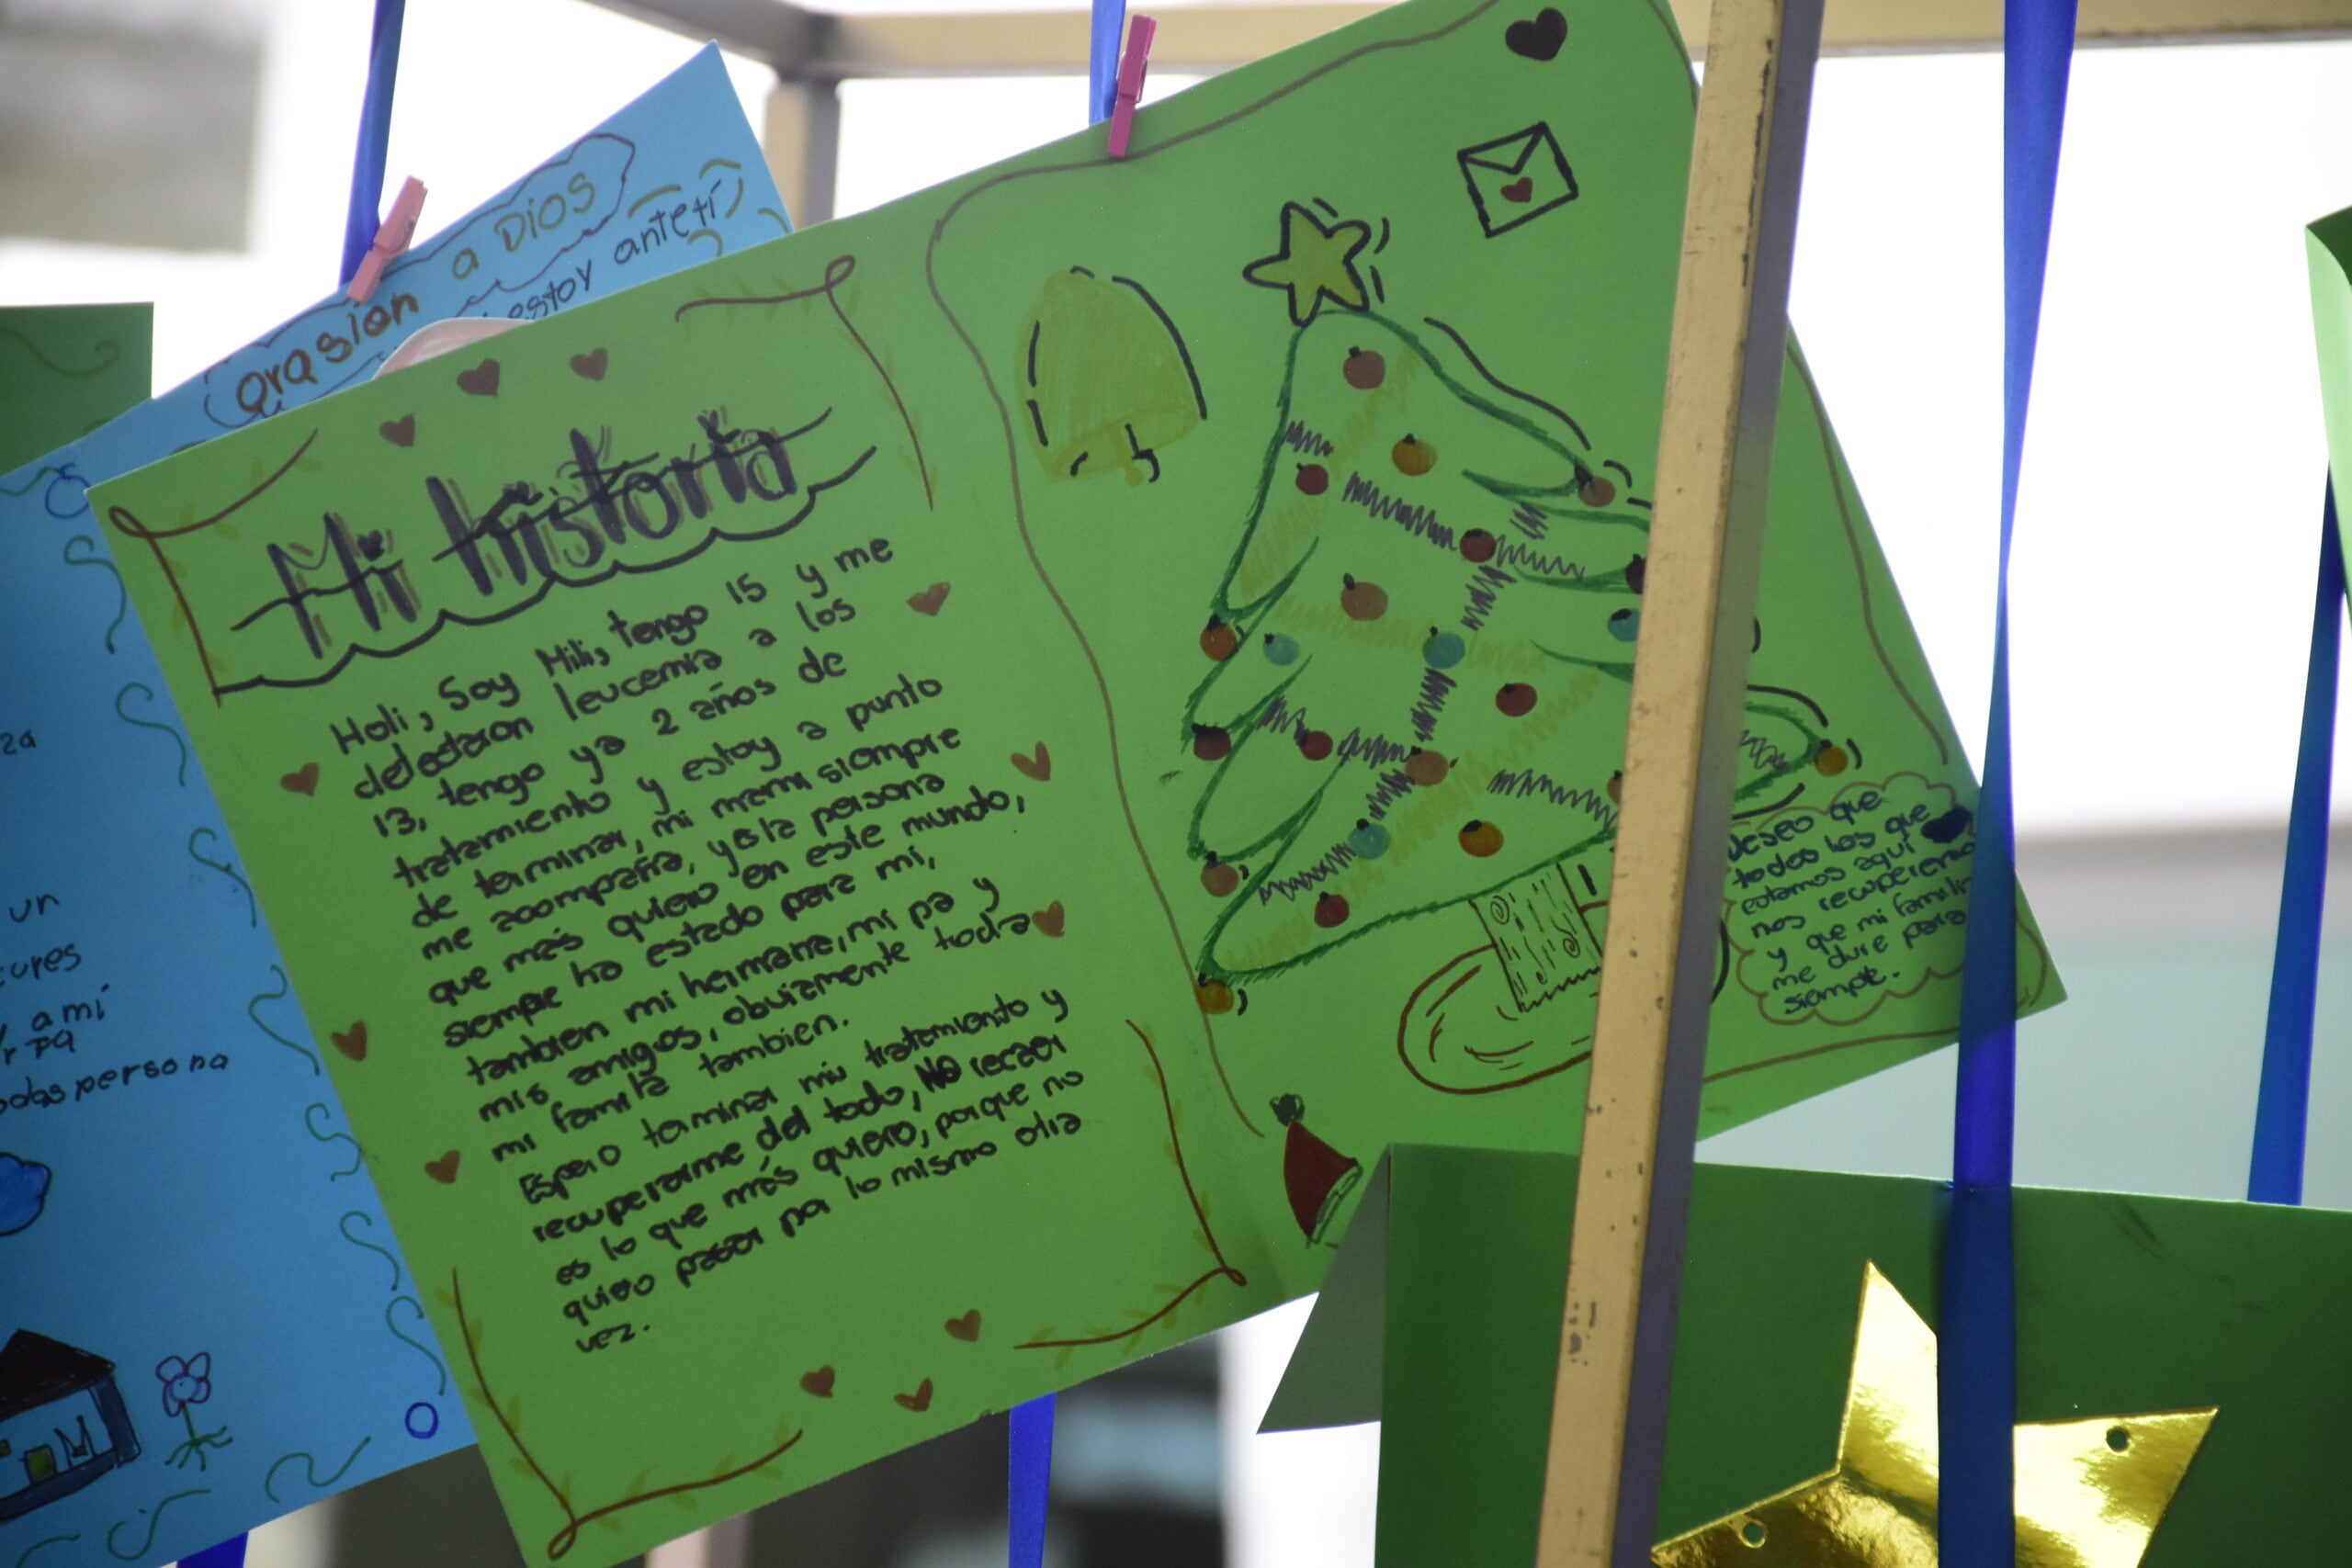 orasion a Dios
estoy ante tí
un
cures
y a mí
persona
Mi historia
Holi, Soy Mili, tengo 15 y me
detectaron leucemia a los
13, tengo ya 2 años de
tratamiento y estoy a punto
de terminar, mi mami siempre
me acompaña, y es la persona
que más quiero en este mundo,
siempre ha estado para mí,
tambien mi hermana, mi pa y
mis amigos, obviamente toda
mi familia tambien.
Espero terminar mi tratamiento y
recuperarme del todo, NO recaer
es lo que más quiero, porque no
quiero pasar por lo mismo otra
vez.
Deseo que
todos los que
estamos aquí
nos recuperemos
y que mi familia
me dure para
siempre.